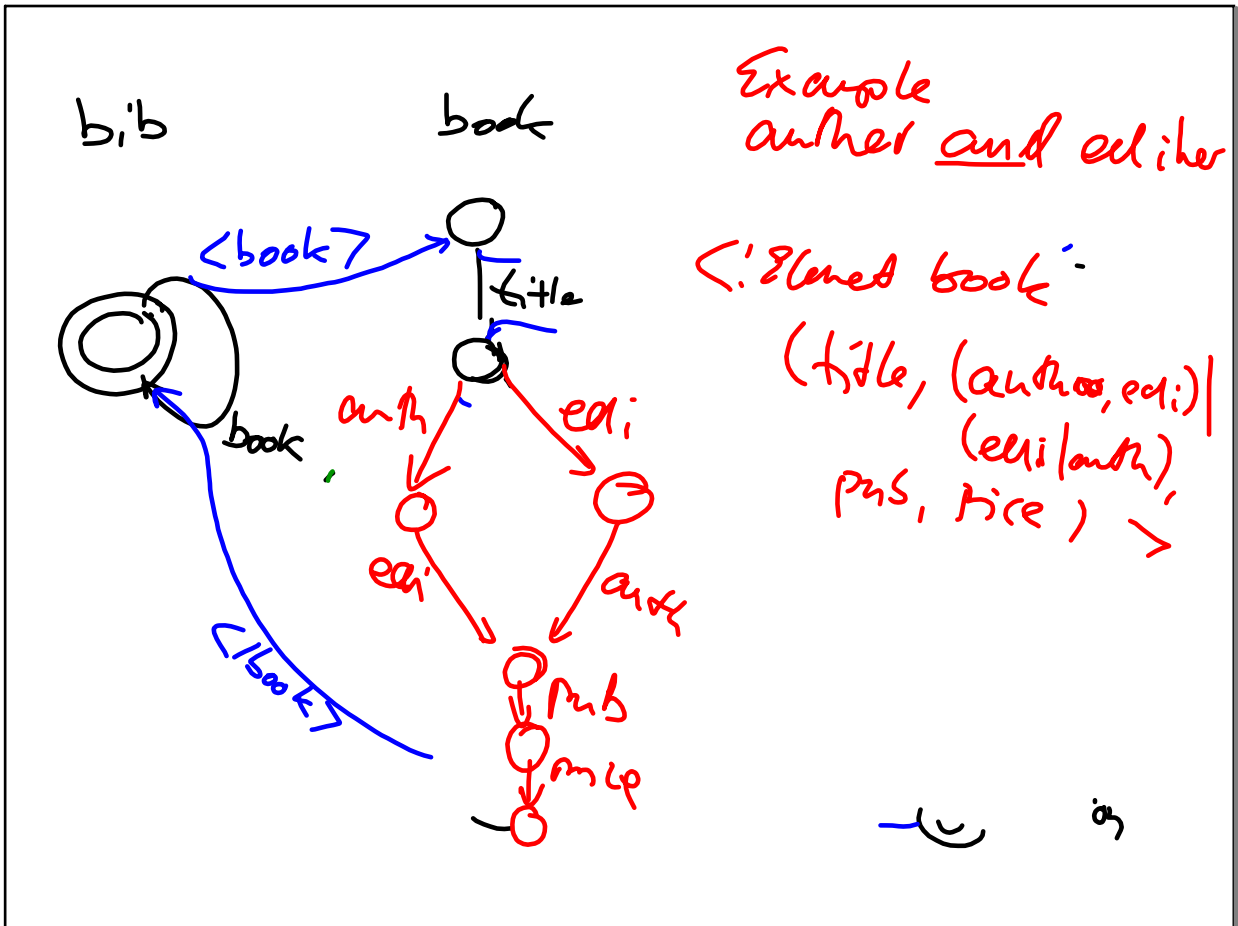 bib
book
Example
auther and editer
<book>
title
<!Elemet book
(title, (auth, edi)|
(edi/auth),
pub, price) >
auth
edi
book
edi
auth
</book>
pub
price